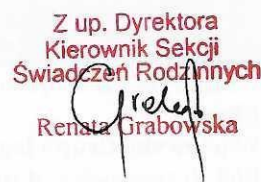 Z up. Dyrektora
Kierownik Sekcji
Świadczeń Rodzinnych
Renata Grabowska